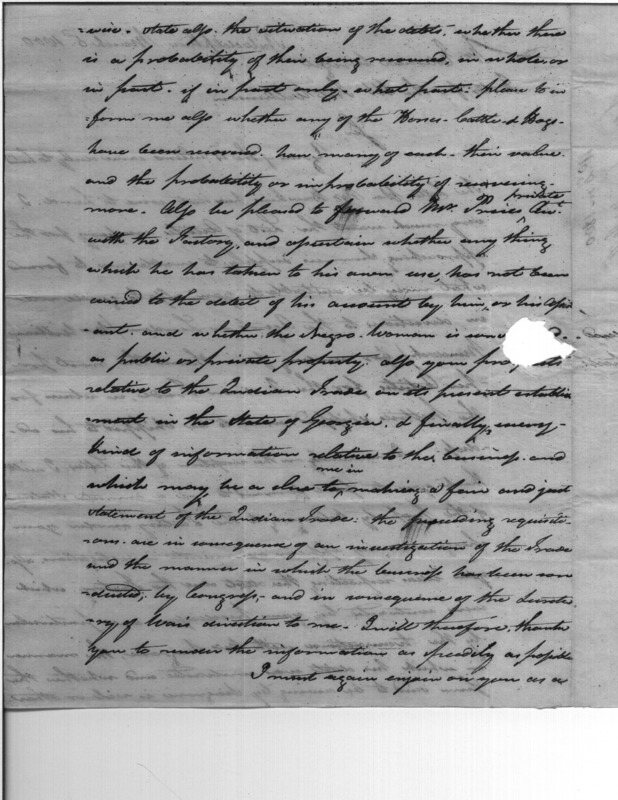 -wise. State also the situation of the debts, whether there
is a probability of their being recovered, in whole or
in part. if in part only. what part. please to in
form me also whether any of the Horses - Cattle & Hogs-
have been recovered. how many of each. their value
and the probability or improbability of recovering
more. Also be pleased to forward Mr. Prices private
with the Factory, and ascertain whether any thing
which he has taken to his own use, has not been
carried to the debet of his account by him, or his assist
-ant. and whether the Negro Woman is
as public or private property. also your
relative to the Indian Trade on its present establish
-ment in the State of Georgia. & finally, every-
kind of information relative to the business. and
which may be a clue to me in making a fair and just
statement of the Indian Trade: the preceeding requisiti-
-ons. are in consequence of an investigation of the Trade
and the manner in which the business has been con
-ducted, by Congress,- and in consequence of the Secreta
-ry of Wars direction to me. I will therefore, thank
you to render the information as speedily as possible
I must again enjoin on you as a